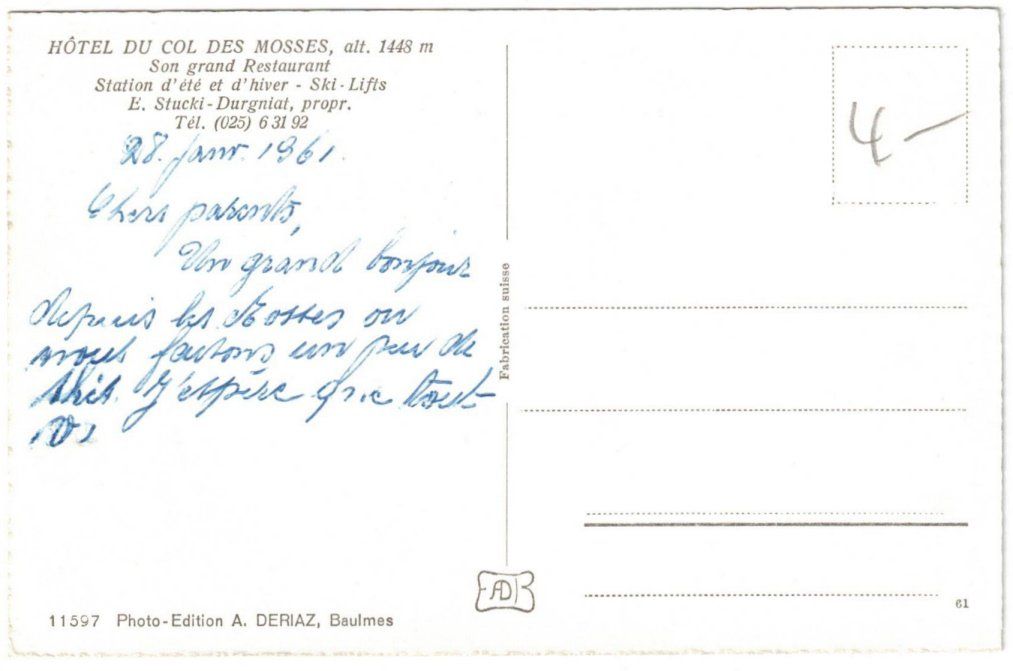 HÔTEL DU COL DES MOSSES, alt. 1448 m
Son grand Restaurant
Station d'été et d'hiver - Ski-Lifts
E. Stucki-Durgniat, propr.
Tél. (025) 6 31 92
28. janv. 1961.
Chers parents,
Un grand bonjour
depuis les Mosses ou
nous faisons un peu de
skis. J'espère que tout
va
4 -
Fabrication suisse
ADB
61
11597 Photo-Edition A. DERIAZ, Baulmes